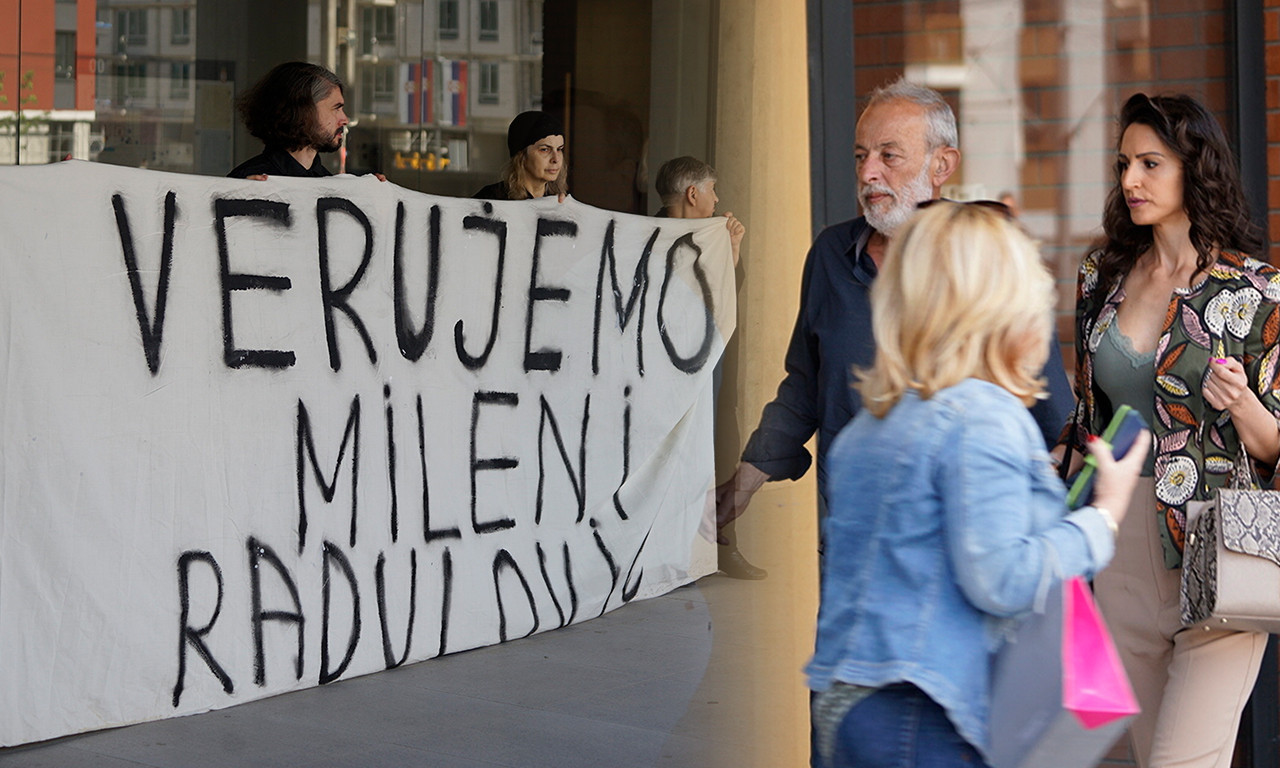 VERUJEMO
MILENI
RADULOVIĆ